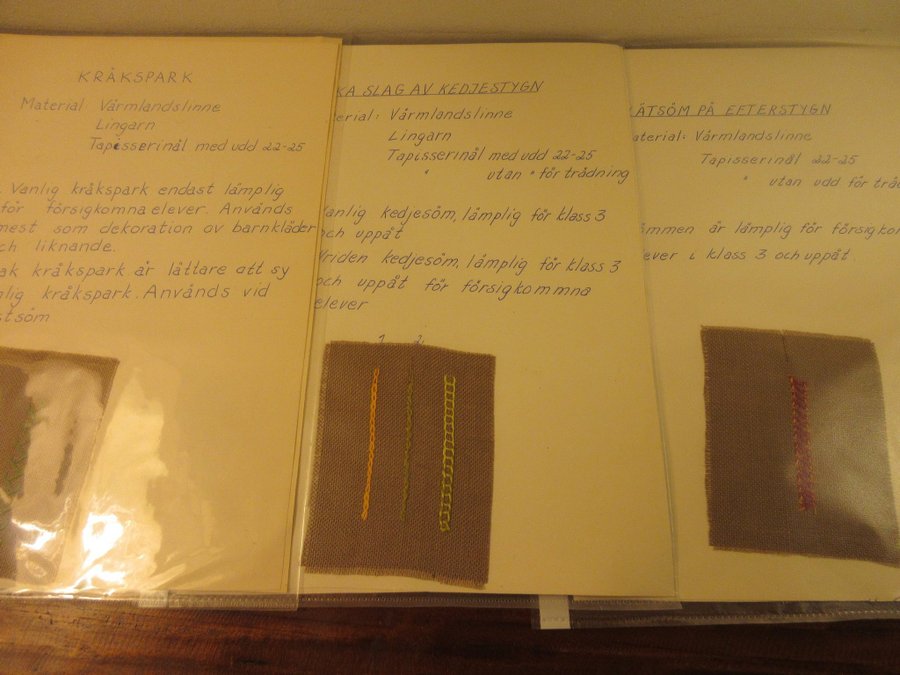 KRÅKSPARK
Material Vårmlandslinne
Lingarn
Tapisserinål med udd 22-25
Vanlig kråkspark endast lämplig
för försigkomna elever. Används
mest som dekoration av barnkläder
och liknande.
kråkspark är lättare att sy
kråkspark. Används vid
SLAG AV KEDJESTYGN
Vårmlandslinne
Lingarn
Tapisserinål med udd 22-25
" utan " för trädning
Vanlig kedjesöm, lämplig för klass 3
och uppåt
Vriden kedjesöm, lämplig för klass 3
och uppåt för försigkommna
elever
1 2
PÅ EFTERSTYGN
Material: Vårmlandslinne
Tapisserinål 22-25
" utan udd för
är lämplig för
i klass 3 och uppåt